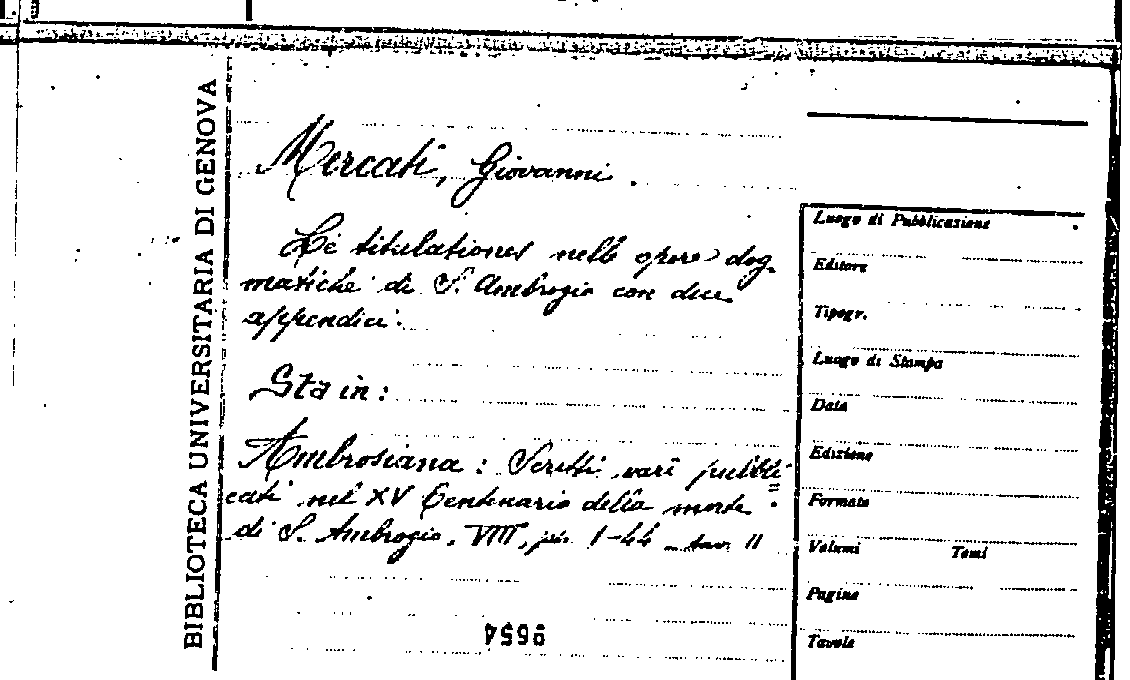 BIBLIOTECA UNIVERSITARIA DI GENOVA
Mercati, Giovanni.
Le titulationes nelle opere dog-
matiche di S. Ambrogio con due
appendici.
Sta in:
Ambrosiana: Scritti vari pubbli=
cati nel XV Centenario della morte
di S. Ambrogio. VIII, pp. 1-44 tav. II
Luogo di Pubblicazione
Editore
Tipogr.
Luogo di Stampa
Data
Edizione
Formato
Volumi Tomi
Pagine
Tavole